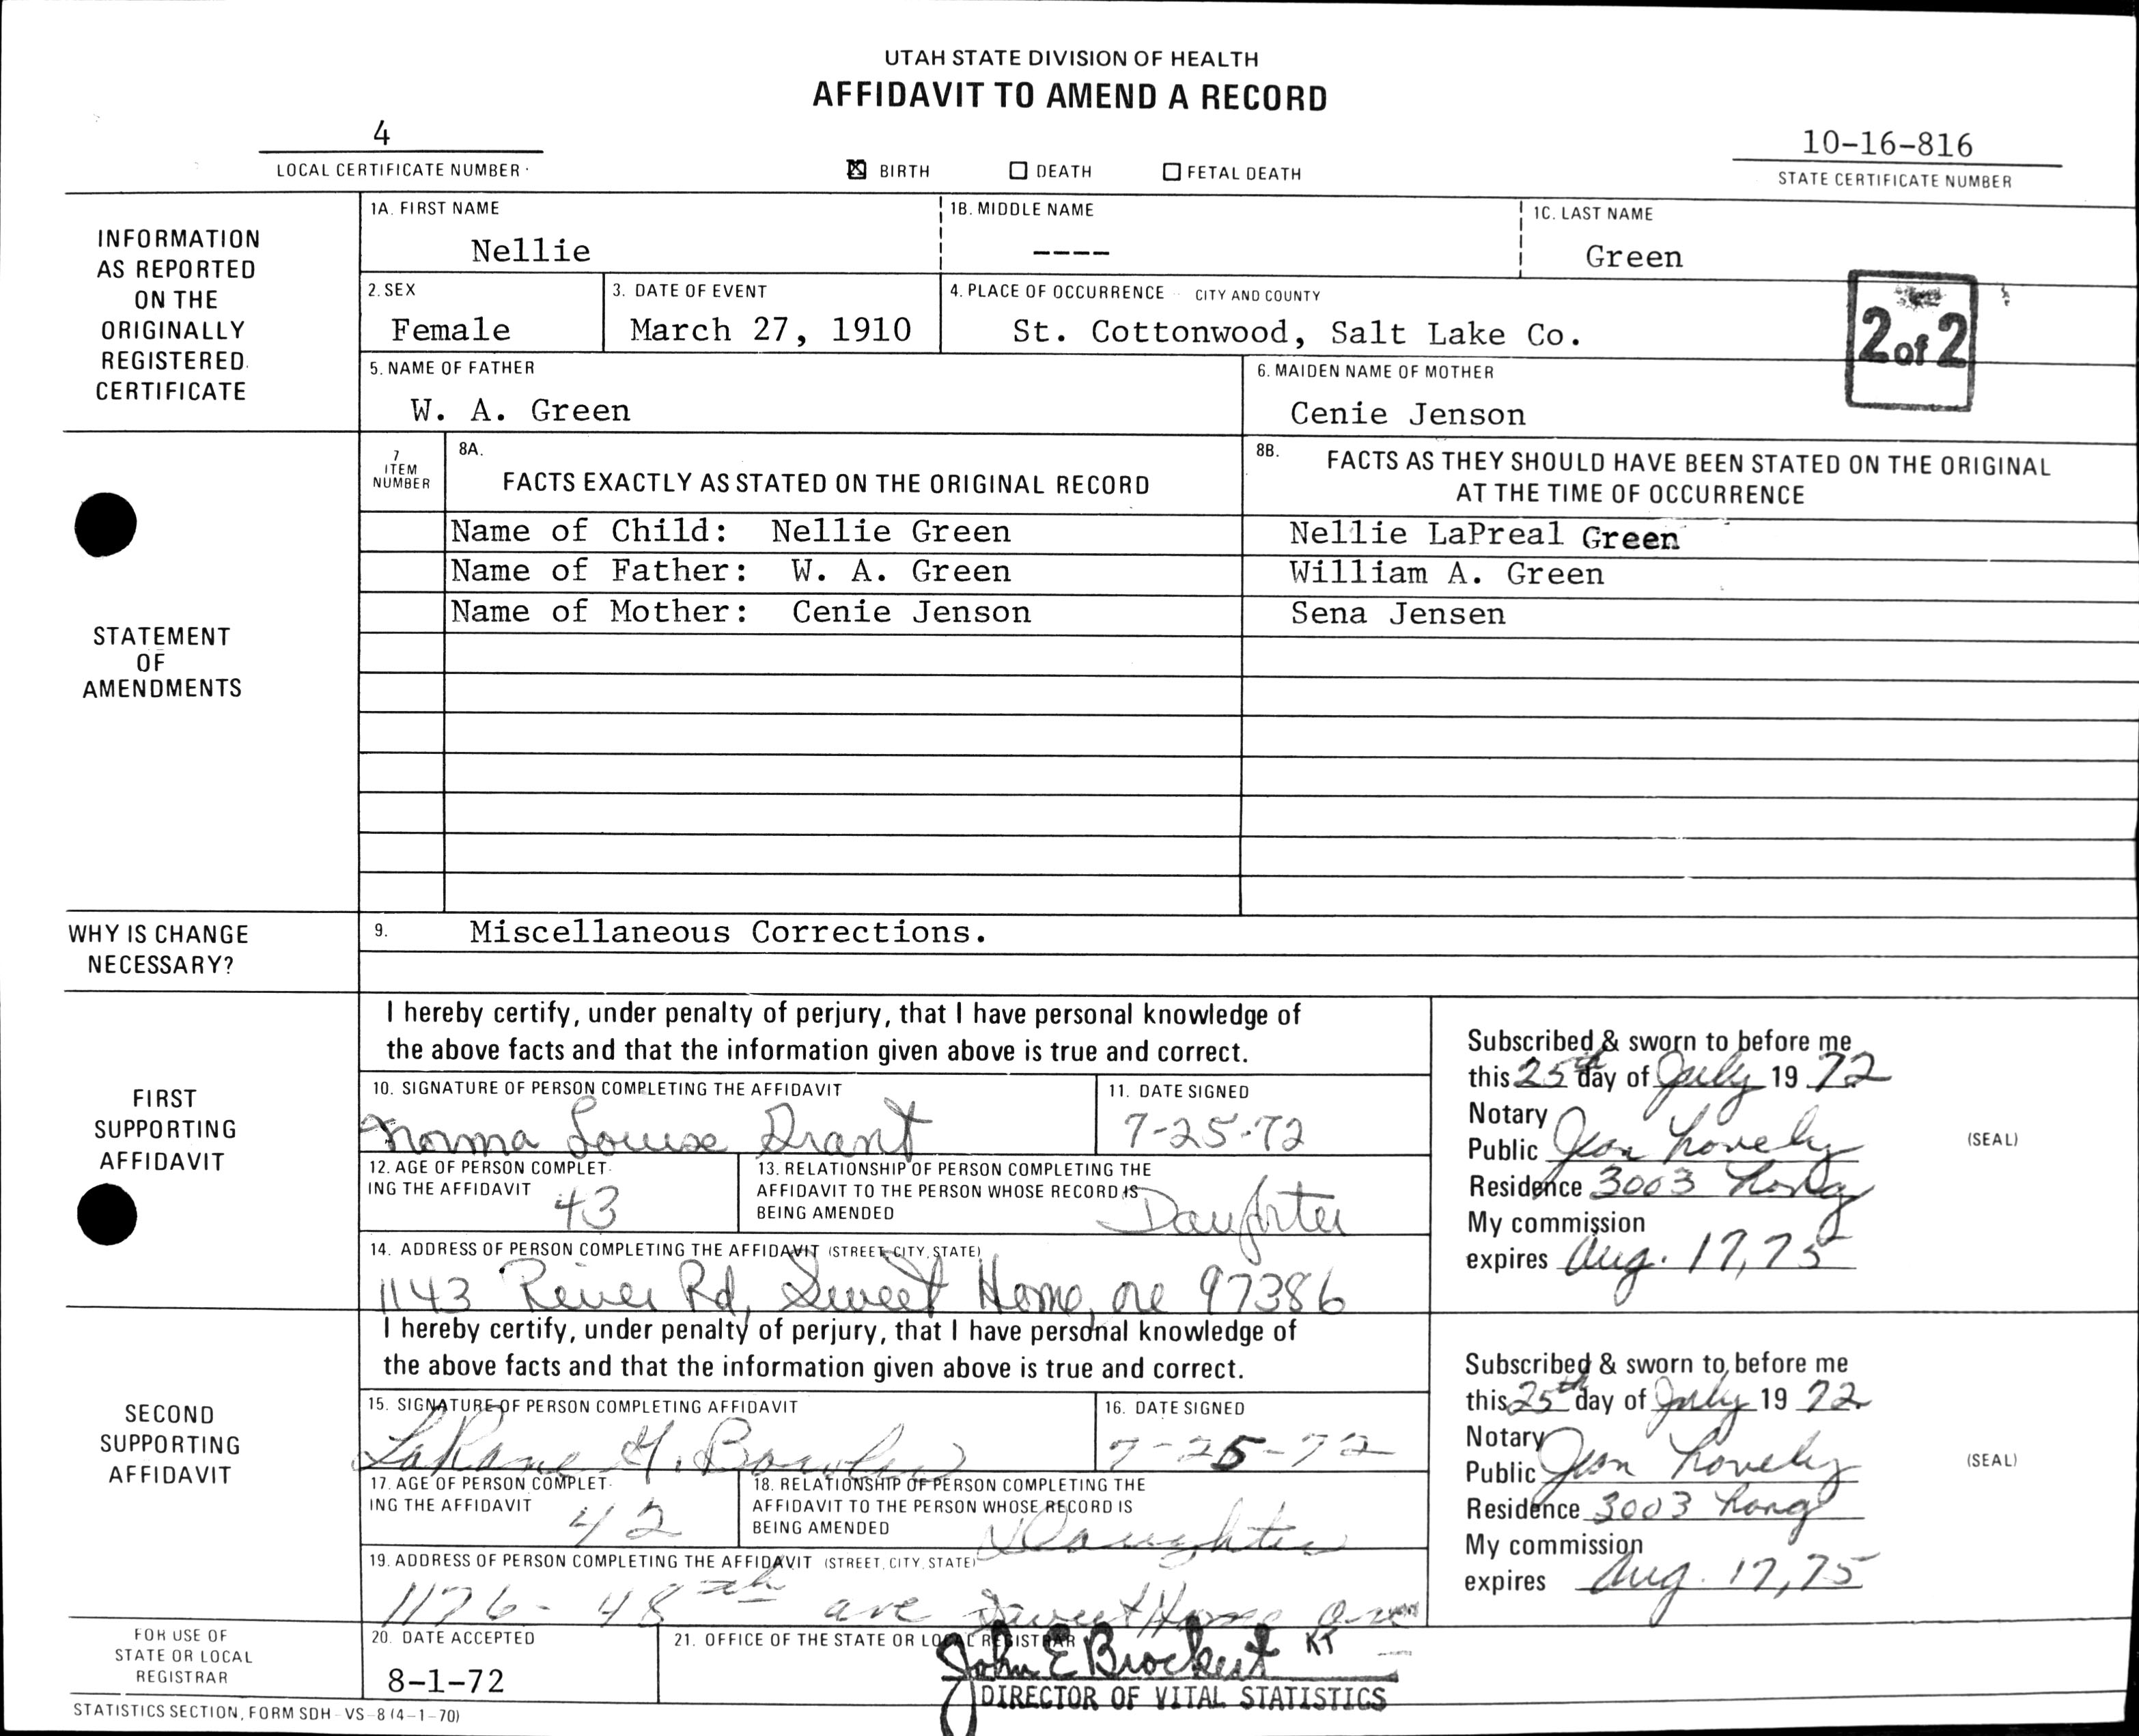 UTAH STATE DIVISION OF HEALTH
AFFIDAVIT TO AMEND A RECORD
4
LOCAL CERTIFICATE NUMBER
BIRTH DEATH FETAL DEATH
10-16-816
STATE CERTIFICATE NUMBER
INFORMATION
AS REPORTED
ON THE
ORIGINALLY
REGISTERED
CERTIFICATE
1A. FIRST NAME 1B. MIDDLE NAME 1C. LAST NAME
Nellie ---- Green
2. SEX 3. DATE OF EVENT 4. PLACE OF OCCURRENCE CITY AND COUNTY
Female March 27, 1910 St. Cottonwood, Salt Lake Co.
2 of 2
5. NAME OF FATHER 6. MAIDEN NAME OF MOTHER
W. A. Green Cenie Jenson
STATEMENT
OF
AMENDMENTS
7
ITEM
NUMBER
8A.
FACTS EXACTLY AS STATED ON THE ORIGINAL RECORD
8B. FACTS AS THEY SHOULD HAVE BEEN STATED ON THE ORIGINAL
AT THE TIME OF OCCURRENCE
Name of Child: Nellie Green Nellie LaPreal Green
Name of Father: W. A. Green William A. Green
Name of Mother: Cenie Jenson Sena Jensen
WHY IS CHANGE
NECESSARY?
9. Miscellaneous Corrections.
FIRST
SUPPORTING
AFFIDAVIT
I hereby certify, under penalty of perjury, that I have personal knowledge of
the above facts and that the information given above is true and correct.
10. SIGNATURE OF PERSON COMPLETING THE AFFIDAVIT 11. DATE SIGNED
Norma Louise Grant 7-25-72
12. AGE OF PERSON COMPLET-
ING THE AFFIDAVIT 43
13. RELATIONSHIP OF PERSON COMPLETING THE
AFFIDAVIT TO THE PERSON WHOSE RECORD IS
BEING AMENDED Daughter
14. ADDRESS OF PERSON COMPLETING THE AFFIDAVIT (STREET, CITY, STATE)
1143 River Rd, Sweet Home, Ore 97386
Subscribed & sworn to before me
this 25th day of July 19 72
Notary
Public Jean Lovely
Residence 3003 Long
My commission
expires Aug. 17, 75
(SEAL)
SECOND
SUPPORTING
AFFIDAVIT
I hereby certify, under penalty of perjury, that I have personal knowledge of
the above facts and that the information given above is true and correct.
15. SIGNATURE OF PERSON COMPLETING AFFIDAVIT 16. DATE SIGNED
7-25-72
17. AGE OF PERSON COMPLET-
ING THE AFFIDAVIT 42
18. RELATIONSHIP OF PERSON COMPLETING THE
AFFIDAVIT TO THE PERSON WHOSE RECORD IS
BEING AMENDED Daughter
19. ADDRESS OF PERSON COMPLETING THE AFFIDAVIT (STREET, CITY, STATE)
1176 - 48th ave Sweet Home
Subscribed & sworn to before me
this 25th day of July 19 72
Notary
Public Jean Lovely
Residence 3003 Long
My commission
expires Aug. 17, 75
(SEAL)
FOR USE OF
STATE OR LOCAL
REGISTRAR
20. DATE ACCEPTED
8-1-72
21. OFFICE OF THE STATE OR LOCAL REGISTRAR
John E Brockert KT
DIRECTOR OF VITAL STATISTICS
STATISTICS SECTION, FORM SDH-VS-8 (4-1-70)